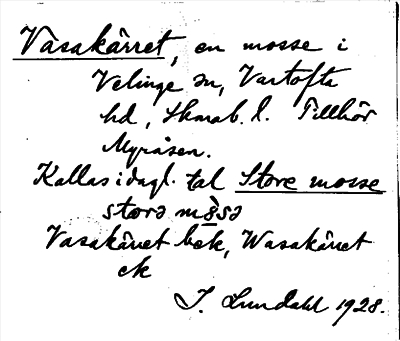 Vasakärret, en mosse i
Velinge sn, Vartofta
hd, Skarab. l. Tillhör
Myråsen.
Kallas i dagl. tal Store mosse
storə m
Vasakärret bek, Wasakärret
ek
J. Lundahl 1928.